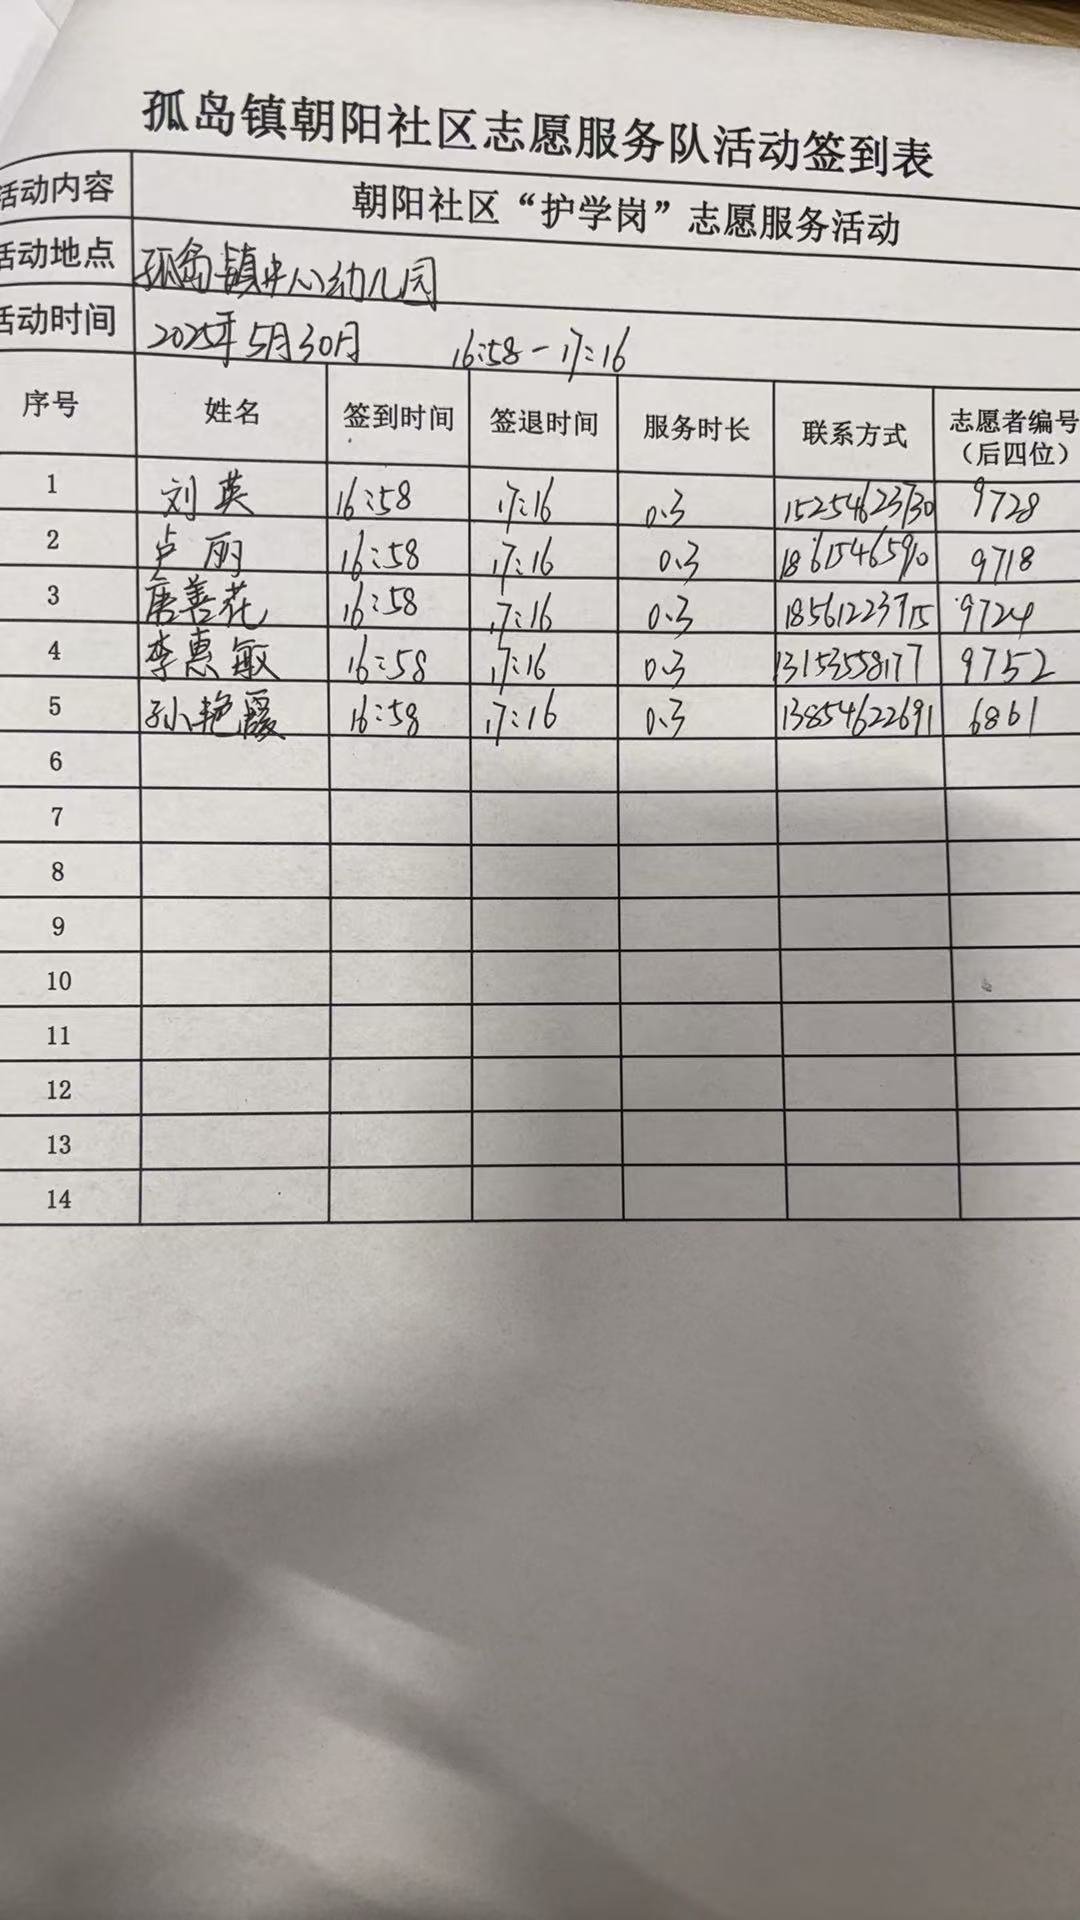 孤岛镇朝阳社区志愿服务队活动签到表
活动内容 朝阳社区“护学岗”志愿服务活动
活动地点 孤岛镇中心幼儿园
活动时间 2025年5月30月 16:58-17:16
序号 姓名 签到时间 签退时间 服务时长 联系方式 志愿者编号（后四位）
1 刘英 16:58 17:16 0.3 15254623730 9728
2 卢丽 16:58 17:16 0.3 18615465910 9718
3 唐善花 16:58 17:16 0.3 18561223715 9724
4 李惠敏 16:58 17:16 0.3 13153558177 9752
5 孙艳霞 16:58 17:16 0.3 13854622691 6861
6
7
8
9
10
11
12
13
14